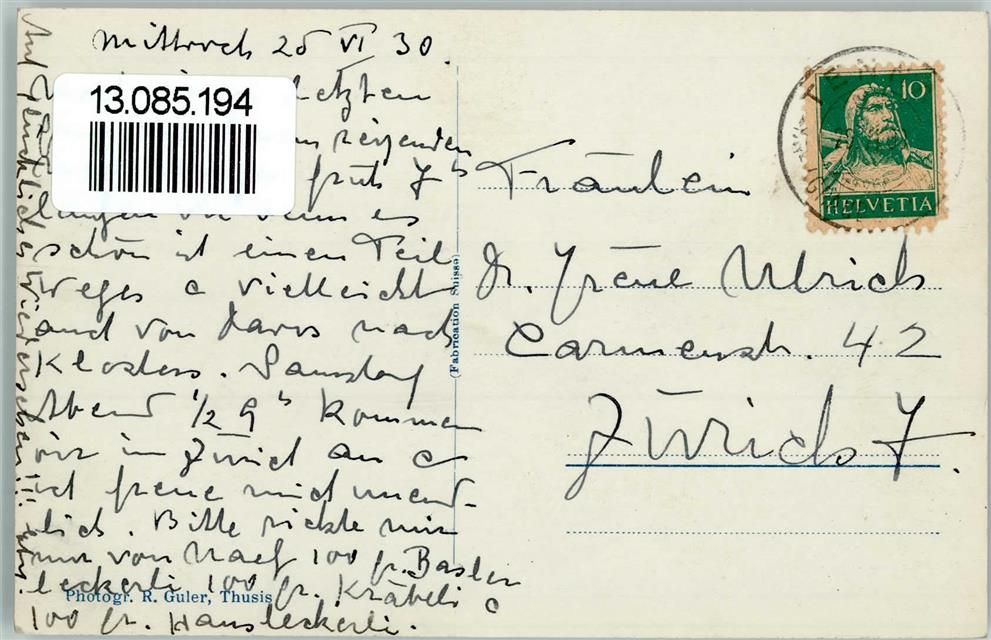 Mittwoch 25 VI 30.
letzten
13.085.194
reizenden
früh 7h
wenn es
schön ist einen Teil
Weges & vielleicht
auch von Davos nach
Klosters. Samstag
Abend ½ 9h kommen
wir in Zürich an &
ich freue mich unend-
lich. Bitte richte mir
nur von Naef 100 gr. Basler
leckerli 100 gr. Kräbeli &
100 gr. Hausleckerli.
Auf Wiedersehen!!!
Photogr. R. Guler, Thusis
(Fabrication Suisse)
10
HELVETIA
Fräulein
Dr. Irène Ulrich
Carmenstr. 42
Zürich 7.